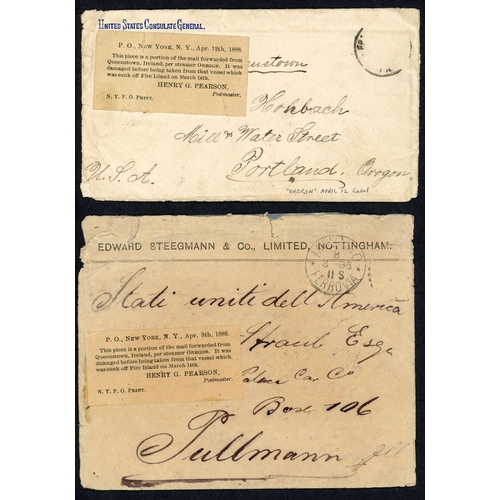 UNITED STATES CONSULATE GENERAL.
P. O., NEW YORK, N. Y., Apr. 12th, 1886.
This piece is a portion of the mail forwarded from
Queenstown, Ireland, per steamer OREGON. It was
damaged before being taken from that vessel which
was sunk off Fire Island on March 14th.
HENRY G. PEARSON,
Postmaster.
N. Y. P. O. PRINT.
Hohbach
Mill & Water Street
Portland. Orogon.
U.S.A.
"OREGON" APRIL 12 Label
EDWARD STEEGMANN & Co., LIMITED, NOTTINGHAM.
FERROVIA
Stati uniti dell'America
P. O., NEW YORK, N. Y., Apr. 9th, 1886.
This piece is a portion of the mail forwarded from
Queenstown, Ireland, per steamer OREGON. It was
damaged before being taken from that vessel which
was sunk off Fire Island on March 14th.
HENRY G. PEARSON,
Postmaster.
N. Y. P. O. PRINT.
Straub Esq
Palace Car Co
Box 106
Pullmann